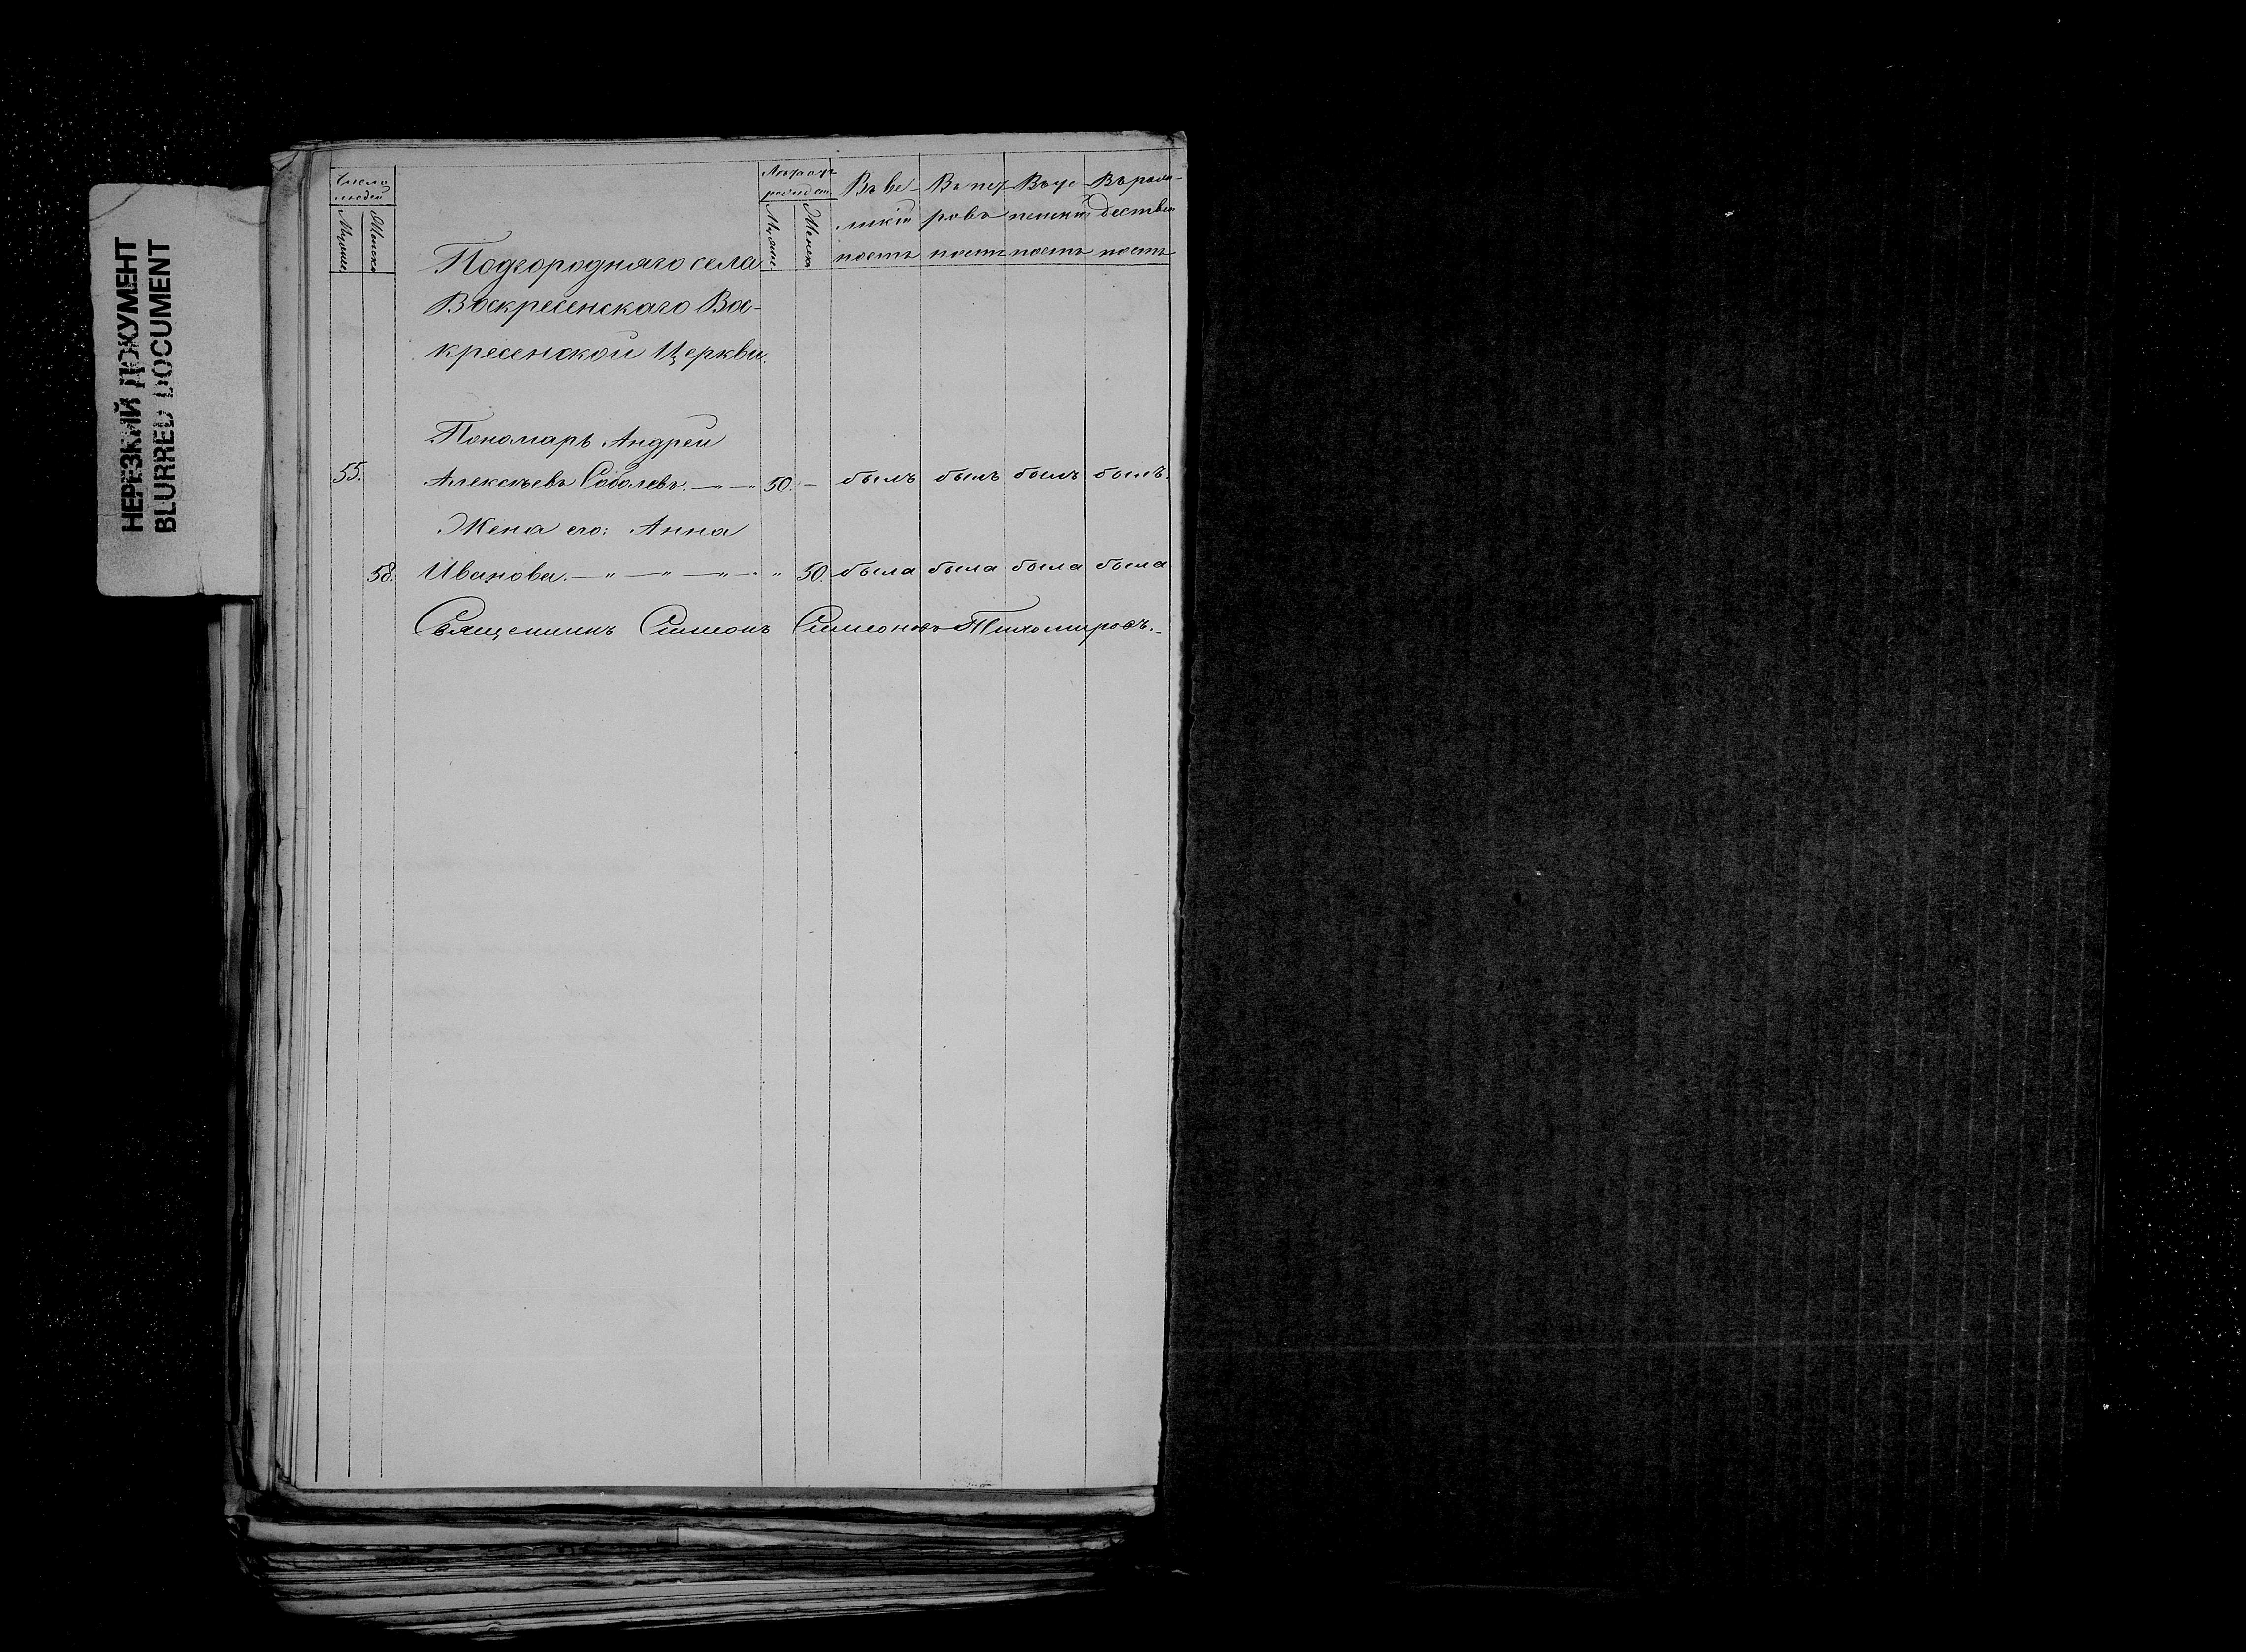 НЕРЕЗКИЙ ДОКУМЕНТ
BLURRED DOCUMENT
Число людей
Мужеска
Женска
Мужеска
Женска
Въ ве-
ликій
постъ
Въ пет
ровъ
постъ
Въ ус
пенскій
постъ
Въ рож-
дествен
постъ
Подгородняго села
Воскресенскаго Вос-
кресенской Церкви.
Пономарь Андрей
55. Алексѣевъ Соболевъ. — „ — „ 50. — былъ былъ былъ былъ.
Жена его: Анна
58. Иванова. — „ — „ — „ — „ 50. была была была была
Священникъ Симеонъ Симеоновъ Тихомировъ. —